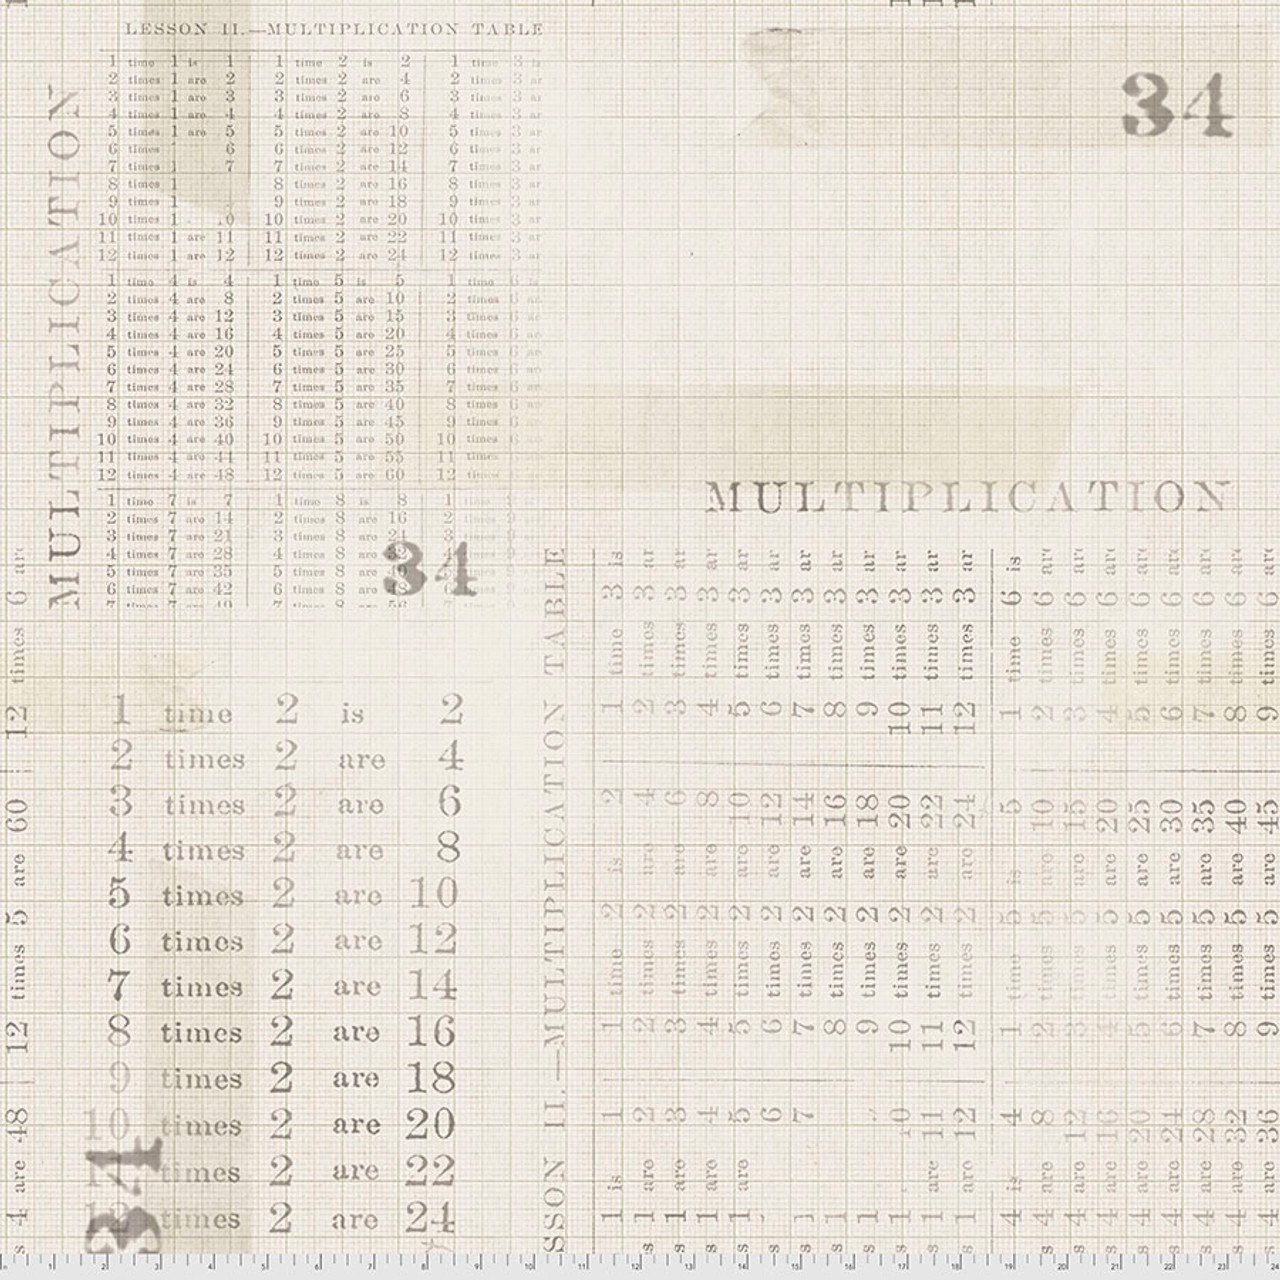 LESSON II.—MULTIPLICATION TABLE
1 time 1 is 1 1 time 2 is 2 1 time 3 is
2 times 1 are 2 2 times 2 are 4 2 times 3 ar
3 times 1 are 3 3 times 2 are 6 3 times 3 ar
4 times 1 are 4 4 times 2 are 8 4 times 3 ar
5 times 1 are 5 5 times 2 are 10 5 times 3 ar
6 times 6 6 times 2 are 12 6 times 3 ar
7 times 1 7 7 times 2 are 14 7 times 3 ar
8 times 1 8 times 2 are 16 8 times 3 ar
9 times 1 9 times 2 are 18 9 times 3 ar
10 times 1 0 10 times 2 are 20 10 times 3 ar
11 times 1 are 11 11 times 2 are 22 11 times 3 ar
12 times 1 are 12 12 times 2 are 24 12 times 3 ar
1 time 4 is 4 1 time 5 is 5 1 time 6 is
2 times 4 are 8 2 times 5 are 10 2 times 6 ar
3 times 4 are 12 3 times 5 are 15 3 times 6 ar
4 times 4 are 16 4 times 5 are 20 4 times 6 ar
5 times 4 are 20 5 times 5 are 25 5 times 6 ar
6 times 4 are 24 6 times 5 are 30 6 times 6 ar
7 times 4 are 28 7 times 5 are 35 7 times 6 ar
8 times 4 are 32 8 times 5 are 40 8 times 6 ar
9 times 4 are 36 9 times 5 are 45 9 times 6
10 times 4 are 40 10 times 5 are 50 10 times 6
11 times 4 are 44 11 times 5 are 55 11 times
12 times 4 are 48 12 times 5 are 60 12 times
1 time 7 is 7 1 time 8 is 8 1
2 times 7 are 14 2 times 8 are 16 2
3 times 7 are 21 3 times 8 are 24 3
4 times 7 are 28 4 times 8 are
5 times 7 are 35 5 times 8 are
6 times 7 are 42 6 times 8 are
MULTIPLICATION
34
34
MULTIPLICATION
1 time 2 is 2
2 times 2 are 4
3 times 2 are 6
4 times 2 are 8
5 times 2 are 10
6 times 2 are 12
7 times 2 are 14
8 times 2 are 16
9 times 2 are 18
10 times 2 are 20
11 times 2 are 22
12 times 2 are 24
34
s 4 are 48 12 times 5 are 60 12 times 6 are
SSON II.—MULTIPLICATION TABLE
1 is 1 1 time 2 is 2 1 time 3 is
s 1 are 2 2 times 2 are 4 2 times 3 ar
s 1 are 3 3 times 2 are 6 3 times 3 ar
s 1 are 4 4 times 2 are 8 4 times 3 ar
s 1 are 5 5 times 2 are 10 5 times 3 ar
6 6 times 2 are 12 6 times 3 ar
s 1 7 7 times 2 are 14 7 times 3 ar
s 1 8 times 2 are 16 8 times 3 ar
s 1 9 times 2 are 18 9 times 3 ar
s 1 10 10 times 2 are 20 10 times 3 ar
s 1 are 11 11 times 2 are 22 11 times 3 ar
s 1 are 12 12 times 2 are 24 12 times 3 ar
4 is 4 1 time 5 is 5 1 time 6 is
s 4 are 8 2 times 5 are 10 2 times 6 are
s 4 are 12 3 times 5 are 15 3 times 6 are
s 4 are 16 4 times 5 are 20 4 times 6 are
s 4 are 20 5 times 5 are 25 5 times 6 are
s 4 are 24 6 times 5 are 30 6 times 6 are
s 4 are 28 7 times 5 are 35 7 times 6 are
s 4 are 32 8 times 5 are 40 8 times 6 are
s 4 are 36 9 times 5 are 45 9 times 6 are
1 2 3 4 5 6 7 8 9 10 11 12 13 14 15 16 17 18 19 20 21 22 23 24